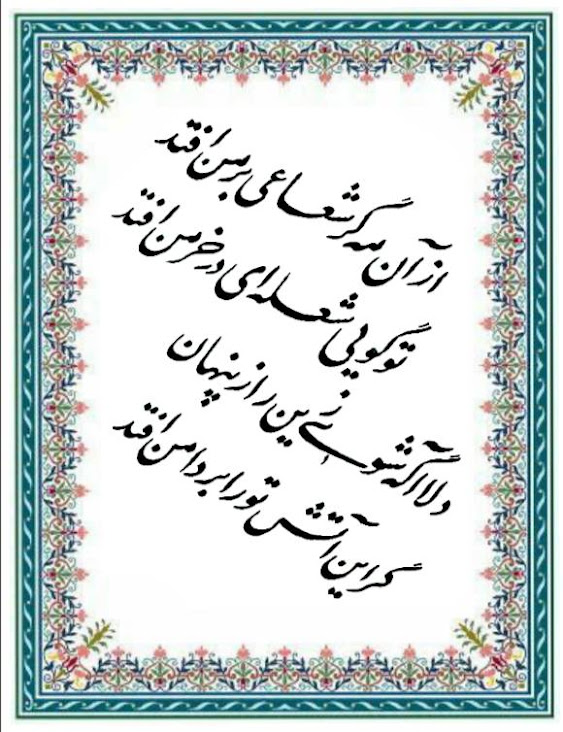 از آن مه گر شعاعی بر من افتد
تو گویی شعله‌ای در خرمن افتد
دلا آگه شوی زین راز پنهان
گر این آتش تو را بر دامن افتد